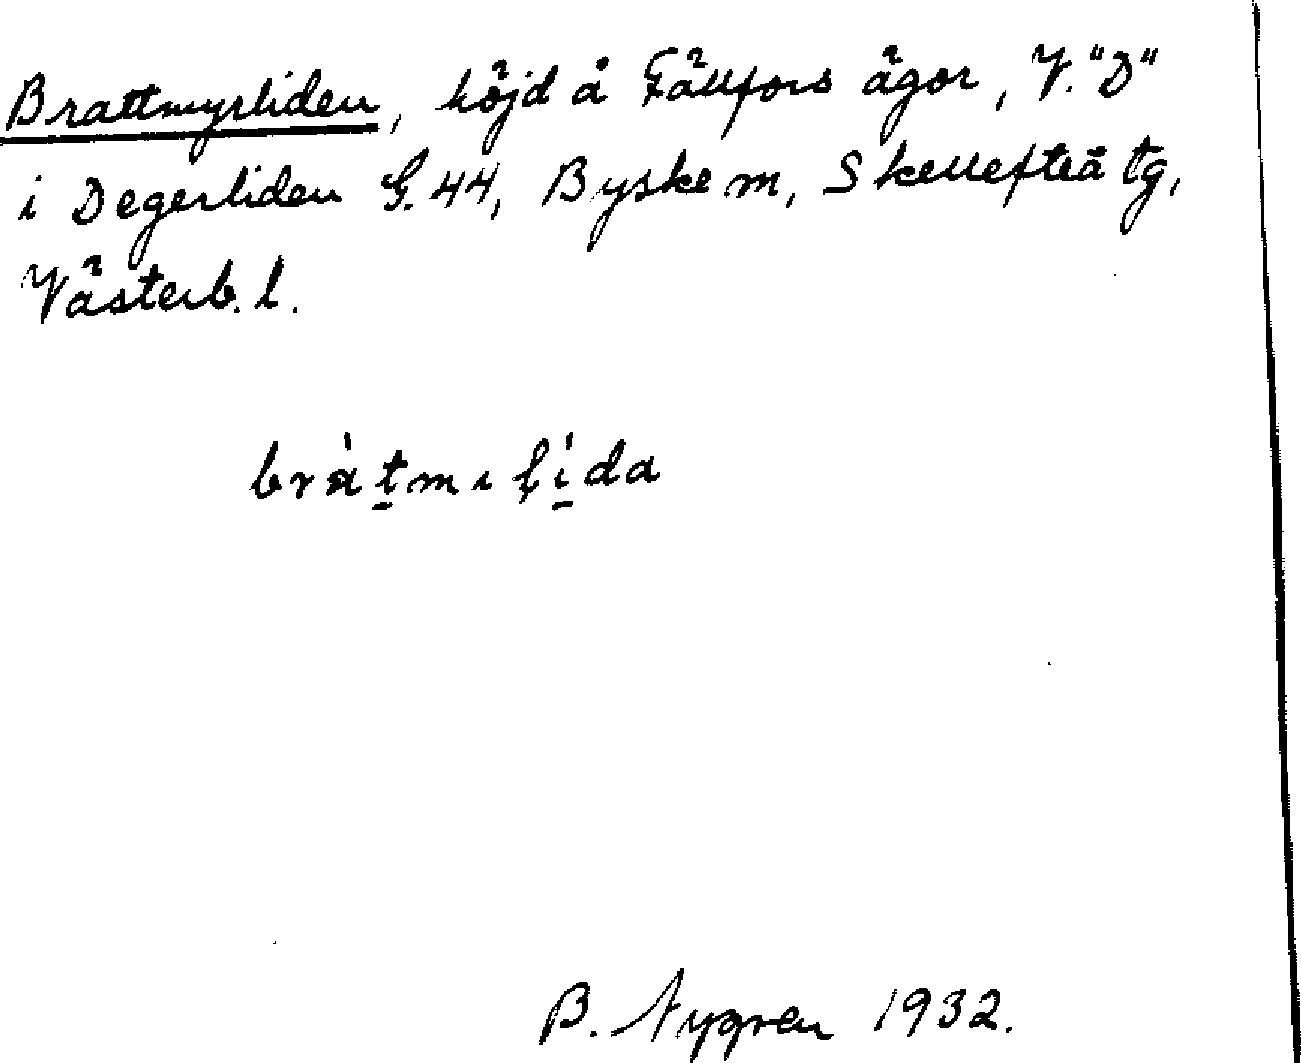 Brattmyrliden, höjd å Fällfors ägor, V. "D"
i Degerliden G. 44, Byske m, Skellefteå tg,
Västerb. l.
bràt̠mıļí̠da
B. Nygren 1932.